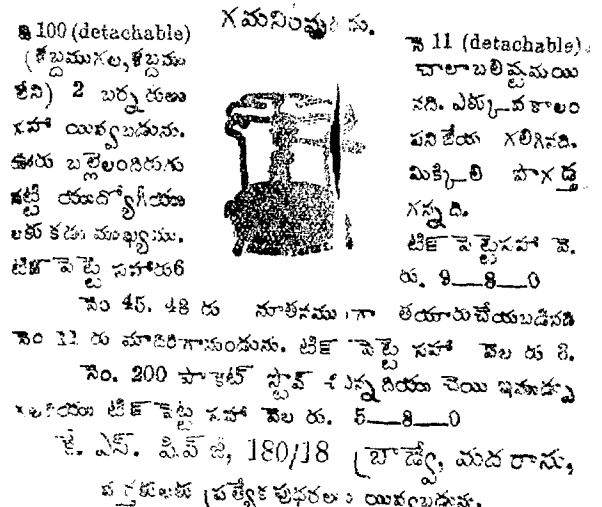 గమనింపుడు.
నెం 100 (detachable)
(శబ్దముగల, శబ్దము
లేని) 2 బర్నరులు
సహా యివ్వబడును.
ఊరు బల్లెలందిరుగు
నట్టి యుద్యోగీయు
లకు కడు ముఖ్యము.
టిక్ పెట్టె సహారు6
నె 11 (detachable).
చాలా బలిష్టమయి
నది. ఎక్కువ కాలం
పనిజేయ గలిగినది.
మిక్కిలి పొగడ్త
గన్నది.
టిక్ పెట్టెసహా వె.
రు. 9—8—0
నెం 45. 48 రు నూతనముగా తయారుచేయబడినది
నెం 11 రు మాదిరిగానుండును. టిక్ పెట్టె సహా వెల రు 8.
నెం. 200 పాకెట్ స్టౌవ్ చిన్నదియు చెయి ఇనుడ్పు
టిక్ పెట్టె సహా వెల రు. 5—8—0
జే. ఎస్. షివ్ జీ, 180/18 బ్రాడ్వే, మదరాసు,
వర్తకులకు ప్రత్యేకపుధరలు యివ్వబడును.